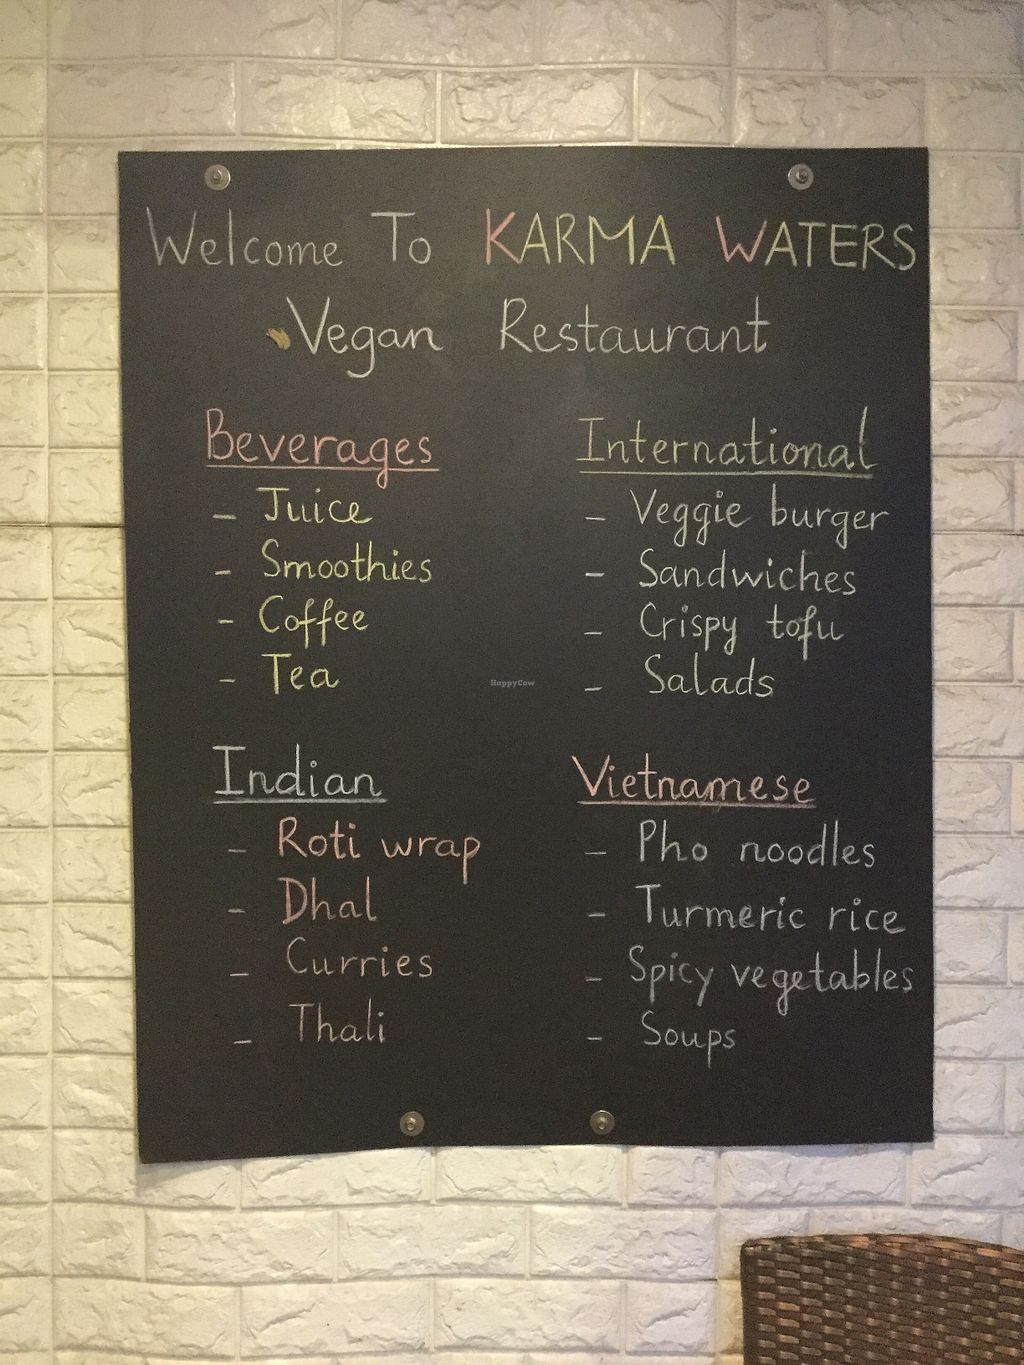 Welcome To KARMA WATERS
Vegan Restaurant
Beverages
- Juice
- Smoothies
- Coffee
- Tea
International
- Veggie burger
- Sandwiches
- Crispy tofu
- Salads
HappyCow
Indian
- Roti wrap
- Dhal
- Curries
- Thali
Vietnamese
- Pho noodles
- Turmeric rice
- Spicy vegetables
- Soups